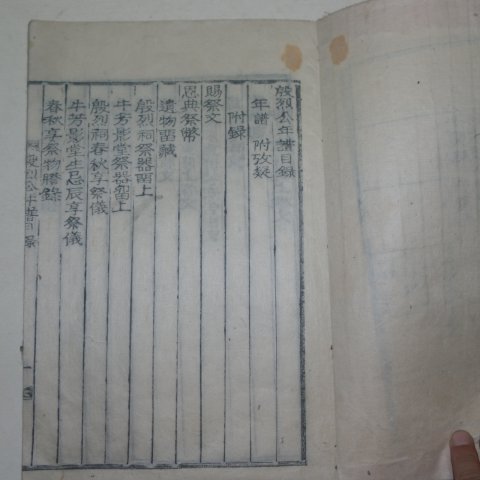 殷烈公年譜目錄
年譜 附攷疑
附錄
賜祭文
恩典祭幣
遺物畱藏
殷烈祠祭器畱上
牛芳影堂祭器畱上
殷烈祠春秋享祭儀
牛芳影堂生忌辰享祭儀
春秋享祭物膠錄
殷烈公年譜目錄
一